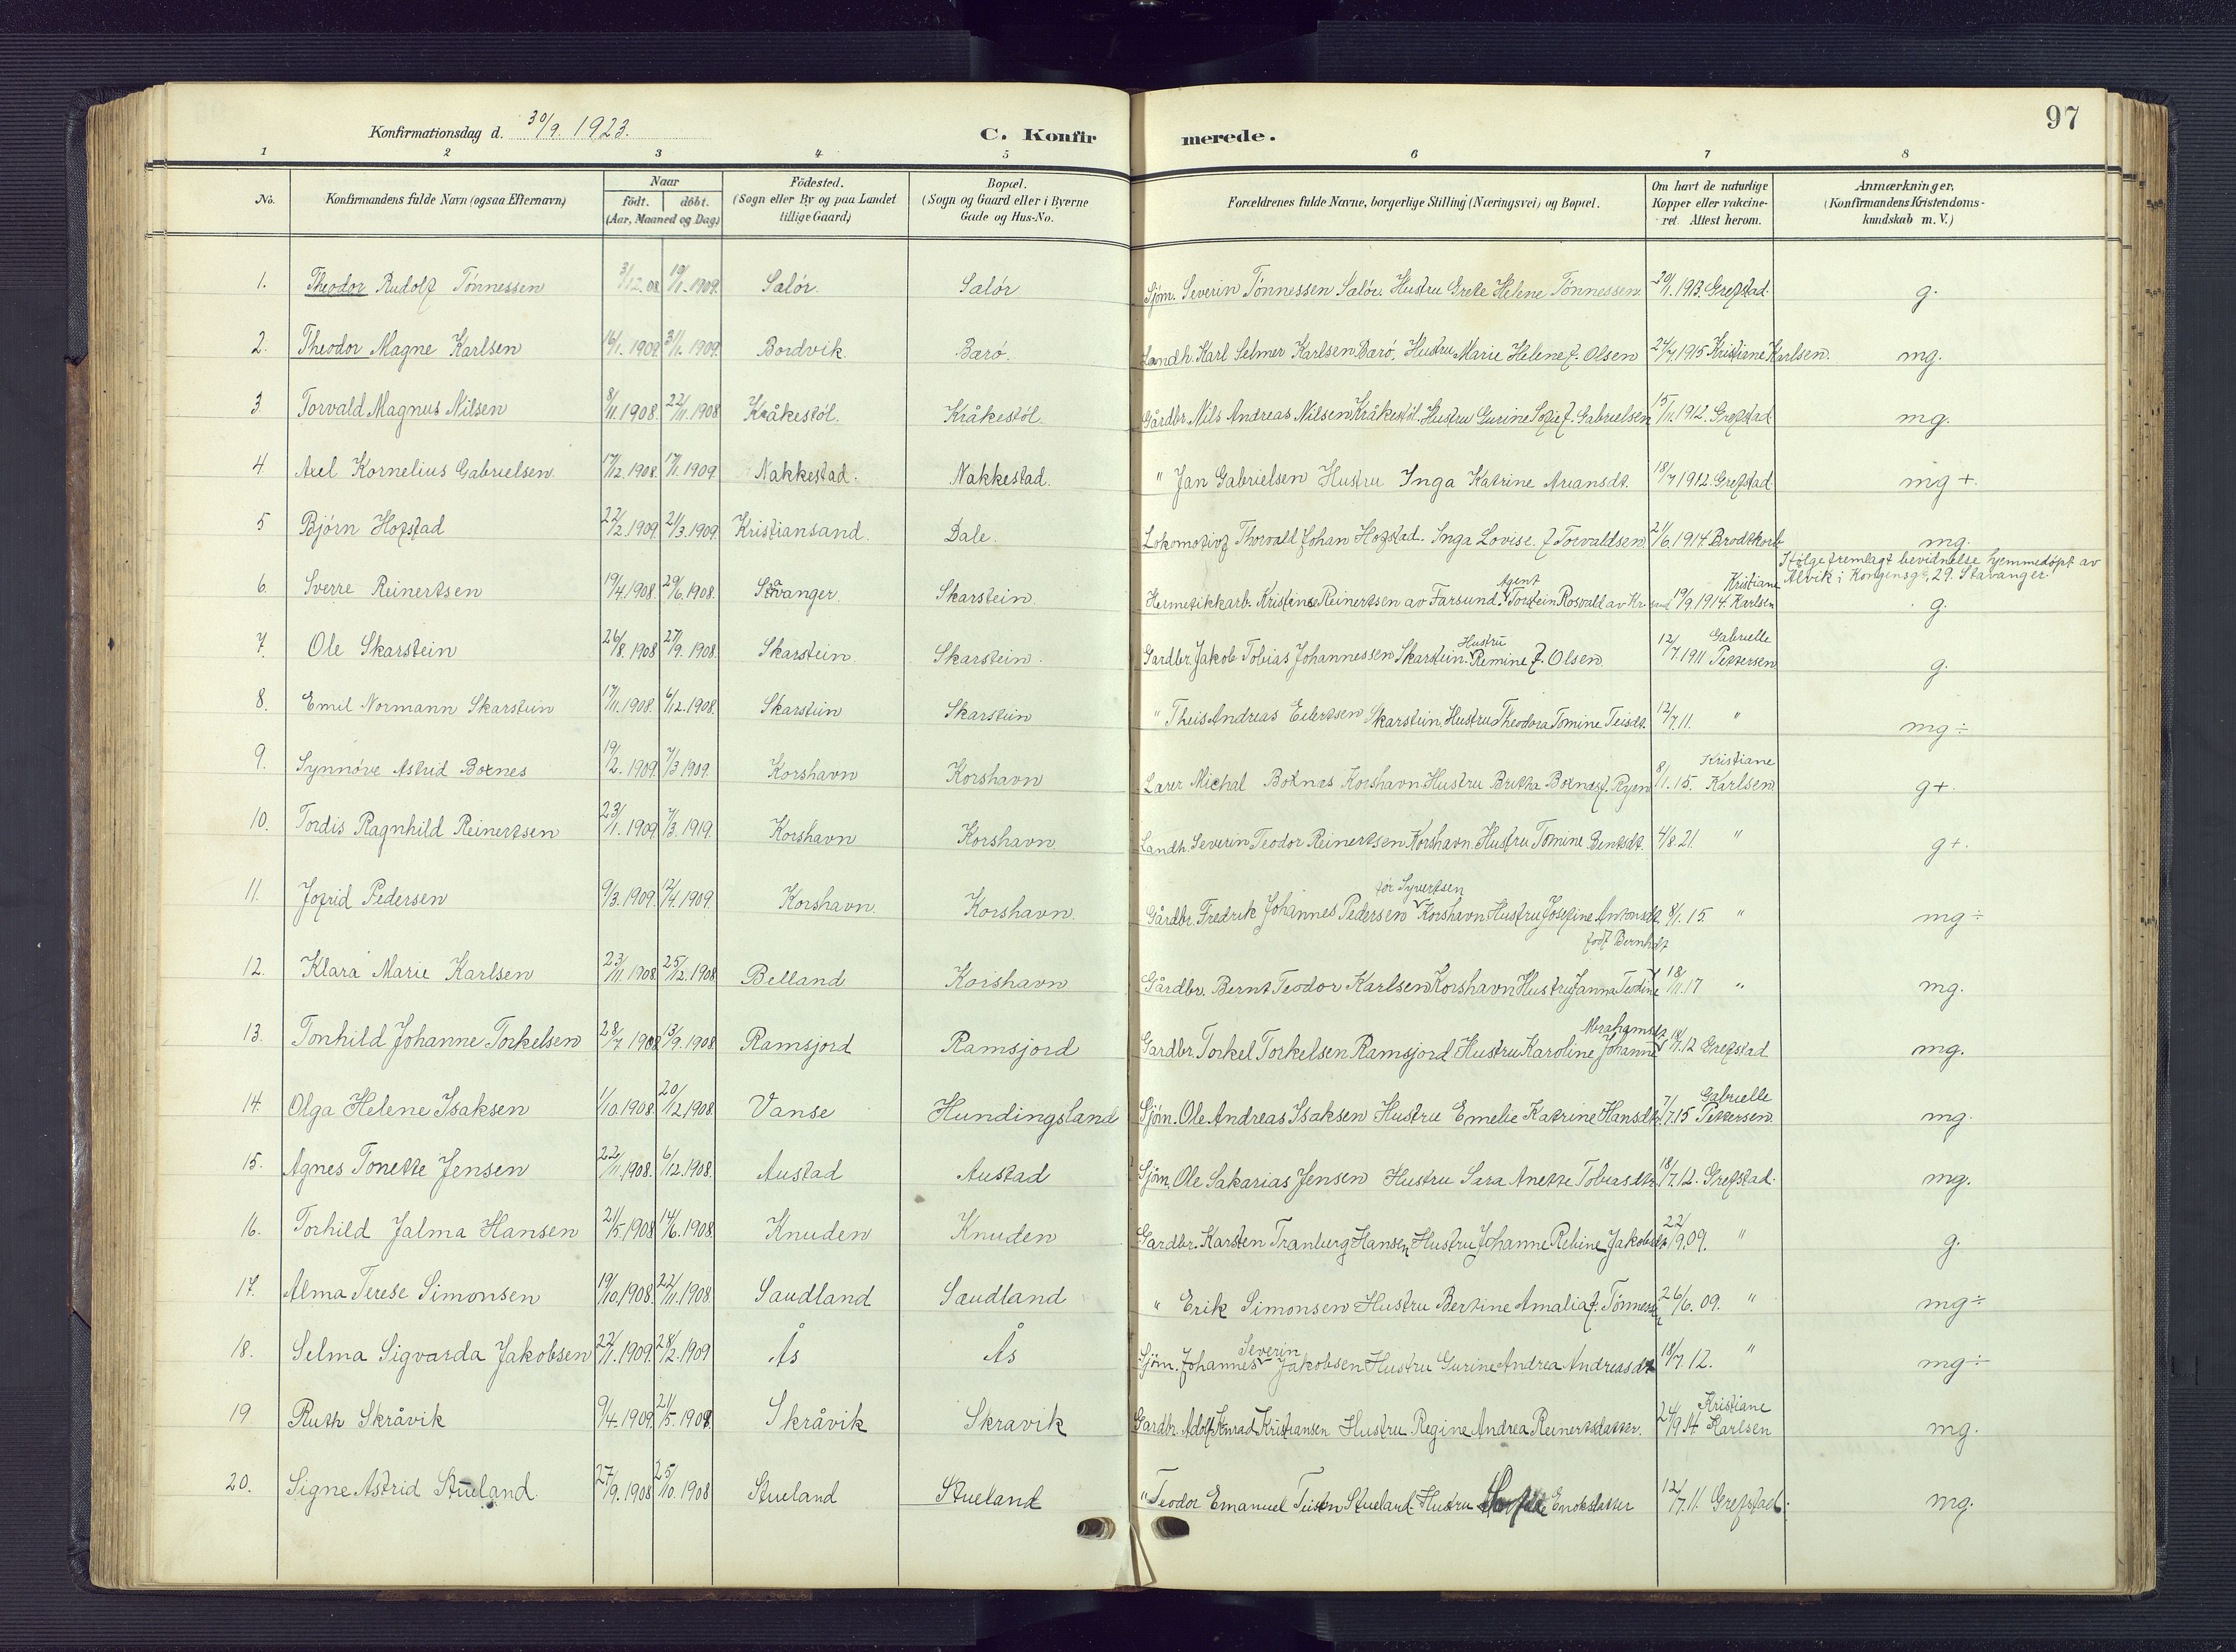 97
Konfirmationsdag d. 30/9. 1923. C. Konfirmerede.
1 2 3 4 5 6 7 8
No. Konfirmandens fulde Navn (ogsaa Efternavn) Naar födt. döbt. (Aar, Maaned og Dag) Födested. (Sogn eller By og paa Landet tillige Gaard) Bopæl. (Sogn og Gaard eller i Byerne Gade og Hus-No. Forældrenes fulde Navne, borgerlige Stilling (Næringsvei) og Bopæl. Om havt de naturlige Kopper eller vakcineret. Attest herom. Anmærkninger. (Konfirmandens Kristendomskundskab m. V.)
1. Theodor Rudolf Tönnessen 3/12.08 10/1.1909. Salör. Salör Sjöm. Severin Tönnessen Salör. Hustru Grete Helene Tönnessen. 20/1.1913. Grefstad. g.
2. Theodor Magne Karlsen 16/1.1909. 31/1.1909. Bordvik. Barö. Landh. Karl Selmer Karlsen Barö. Hustru Marie Helene f. Olsen 24/7.1915 Kristiane Karlsen. mg.
3. Torvald Magnus Nilsen 8/11.1908. 22/11.1908 Kråkestöl. Kråkestöl. Gårdbr. Nils Andreas Nilsen Kråkestöl. Hustru Gurine Sofie f. Gabrielsen 15/11.1912. Grefstad mg.
4. Axel Kornelius Gabrielsen 17/12.1908. 17/1.1909 Nakkestad. Nakkestad. " Jan Gabrielsen Hustru Inga Katrine Ariansdt. 18/7 1912. Grefstad. mg+.
5 Björn Hofstad 22/2.1909. 21/3.1909. Kristiansand. Dale. Lokomotivf. Thorvald Johan Hofstad. Inga Lovise f. Torvaldsen. 21/6.1914. Brodtkorb mg.
Ifölge fremlagt bevidnelse hjemmedöpt av Alvik i Kongensgt. 29. Stavanger.
6. Sverre Reinertsen 19/4.1908. 29/6.1908. Stavanger. Skarstein. Hermetikkarb. Kristine Reinertsen av Farsund. Agent Torstein Rosvald av Kr. sand 19/9.1914. Kristiane Karlsen g.
7. Ole Skarstein 26/8.1908 27/9.1908. Skarstein. Skarstein. Gardbr. Jakob Tobias Johannessen Skarstein. Hustru Remine f. Olsen 12/7.1911 Gabrielle Pettersen g.
8. Emil Normann Skarstein 17/11.1908. 6/12.1908. Skarstein Skarstein " Theis Andreas Eilertsen Skarstein. Hustru Theodora Tomine Teisdt. 12/7.11. " mg÷
9. Synnöve Astrid Botnes 19/2.1909. 7/3 1909. Korshavn Korshavn Lærer Michal Botnes Korshavn. Hustru Britha Botnes f. Ryen 8/1.15. Kristiane Karlsen g+.
10. Tordis Ragnhild Reinertsen 23/1.1909. 7/3.1919. Korshavn Korshavn. Landh. Severin Teodor Reinertsen Korshavn. Hustru Tomine Bentsdt. 4/8 21. " g+.
11. Jofrid Pedersen 9/3.1909. 12/4.1909. Korshavn. Korshavn. Gårdbr. Fredrik Johannes Pedersen för Syvertsen Korshavn Hustru Josefine Antonsdt. 8/1.15. " mg÷
12. Klara Marie Karlsen 23/11.1908. 25/12.1908. Belland Korshavn Gårdbr. Bernt Teodor Karlsen Korshavn Hustru Janna Teodine född Berntsdt 18/11.17 " mg.
13. Tonhild Johanne Torkelsen 28/7.1908 13/9.1908. Ramsjord Ramsjord Gardbr. Torkel Torkelsen Ramsjord Hustru Karoline Johanne Abrahamsdt 18/7.12 Grefstad mg.
14. Olga Helene Isaksen 1/10.1908. 20/12.1908. Vanse Hundingsland Sjöm. Ole Andreas Isaksen Hustru Emelie Katrine Hansdtr. 7/7.15 Gabrielle Pettersen. mg.
15. Agnes Tonette Jensen 22/11.1908. 6/12.1908. Austad Austad Sjöm. Ole Sakarias Jensen Hustru Sara Anette Tobiasdtr 18/7.12. Grefstad. mg.
16. Torhild Jalma Hansen 21/5.1908 14/6.1908. Knuden Knuden Gardbr. Karsten Tranberg Hansen Hustru Johanne Rebine Jakobsdtr 22/9.09. " g.
17. Alma Terese Simonsen 19/10.1908. 22/11.1908. Saudland Saudland " Erik Simonsen Hustru Bertine Amalia f. Tönnesen 26/6.09. " mg÷
18. Selma Sigvarda Jakobsen 22/1.1909. 28/2.1909 Ås Ås Sjöm. Johannes Severin Jakobsen Hustru Gurine Andrea Andreasdt 18/7.12. " mg÷
19 Ruth Skråvik 9/4.1909. 21/5.1909. Skråvik Skravik Gardbr. Adolf Konrad Kristiansen Hustru Regine Andrea Reinertsdatter. 24/9.14 Kristiane Karlsen mg.
20. Signe Astrid Stueland. 27/9.1908 25/10.1908 Stueland Stueland " Teodor Emanuel Teisen Stueland Hustru Enoksdatter 12/7.11. Grefstad. mg.